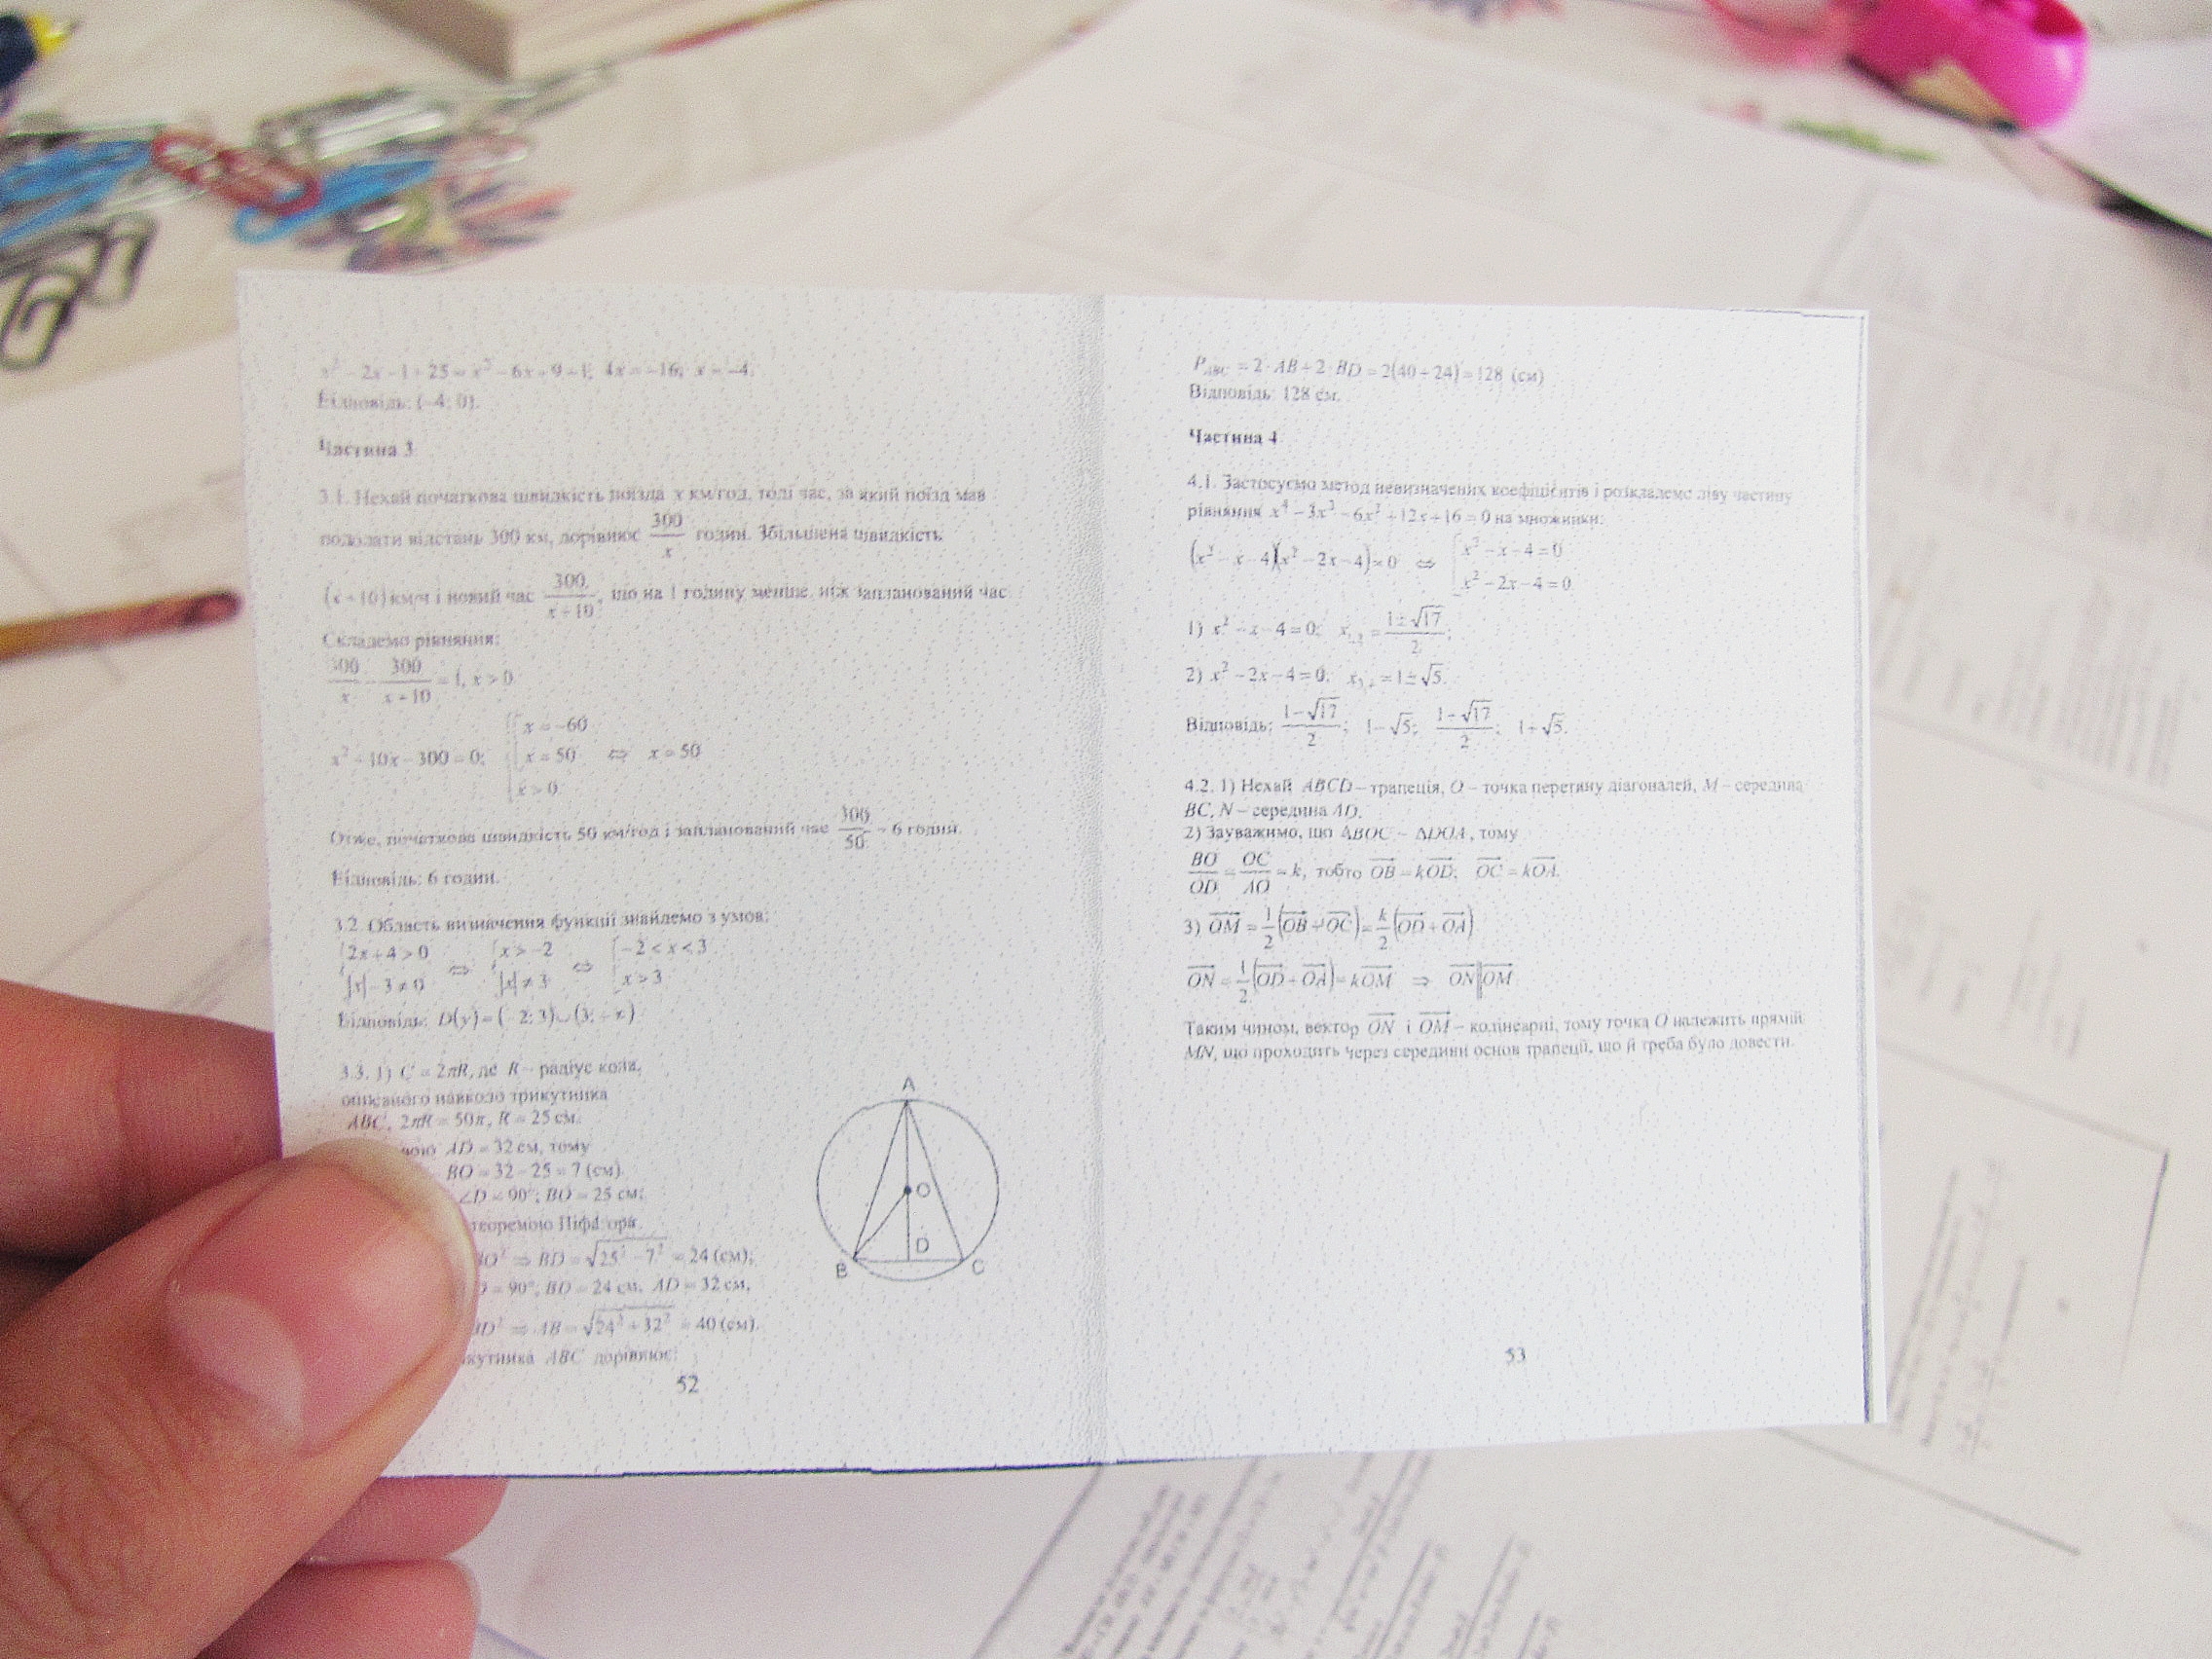 x² − 2x + 1 + 25 = x² − 6x + 9 + 1; 4x = −16; x = −4.
Відповідь: (−4; 0).
Частина 3
3.1. Нехай початкова швидкість поїзда x км/год, тоді час, за який поїзд мав
подолати відстань 300 км, дорівнює 300/x годин. Збільшена швидкість
(x + 10) км/ч і новий час 300/(x + 10), що на 1 годину менше, ніж запланований час
Складемо рівняння:
300/x − 300/(x + 10) = 1, x > 0
x² + 10x − 300 = 0; { [ x = −60 x = 50 x > 0 ⇔ x = 50
Отже, початкова швидкість 50 км/год і запланований час 300/50 = 6 годин.
Відповідь: 6 годин.
3.2. Область визначення функції знайдемо з умов:
{ 2x + 4 > 0 |x| − 3 ≠ 0 ⇔ { x > −2 |x| ≠ 3 ⇔ [ −2 < x < 3 x > 3
Відповідь: D(y) = (−2; 3)∪(3; +∞)
3.3. 1) C = 2πR, де R – радіус кола,
описаного навколо трикутника
ABC, 2πR = 50π, R = 25 см.
AD = 32 см, тому
BO = 32 − 25 = 7 (см)
∠D = 90°; BO = 25 см;
теоремою Піфагора
BO² ⇒ BD = √(25² − 7²) = 24 (см);
= 90°; BD = 24 см, AD = 32 см,
BD² ⇒ AB = √(24² + 32²) = 40 (см).
ABC дорівнює:
A
O
D
B
C
52
P_ABC = 2 · AB + 2 · BD = 2(40 + 24) = 128 (см)
Відповідь: 128 см.
Частина 4
4.1. Застосуємо метод невизначених коефіцієнтів і розкладемо ліву частину
рівняння x⁴ − 3x³ − 6x² + 12x + 16 = 0 на множники:
(x² − x − 4)(x² − 2x − 4) = 0 ⇔ [ x² − x − 4 = 0 x² − 2x − 4 = 0
1) x² − x − 4 = 0; x₁,₂ = (1 ± √17)/2;
2) x² − 2x − 4 = 0; x₃,₄ = 1 ± √5.
Відповідь: (1 − √17)/2; 1 − √5; (1 + √17)/2; 1 + √5.
4.2. 1) Нехай ABCD – трапеція, O – точка перетину діагоналей, M – середина
BC, N – середина AD.
2) Зауважимо, що ΔBOC ~ ΔDOA, тому
BO/OD = OC/AO = k, тобто OB = kOD; OC = kOA.
3) OM = 1/2(OB + OC) = k/2(OD + OA)
ON = 1/2(OD + OA) = kOM ⇒ ON∥OM
Таким чином, вектор ON і OM – колінеарні, тому точка O належить прямій
MN, що проходить через середини основ трапеції, що й треба було довести.
53